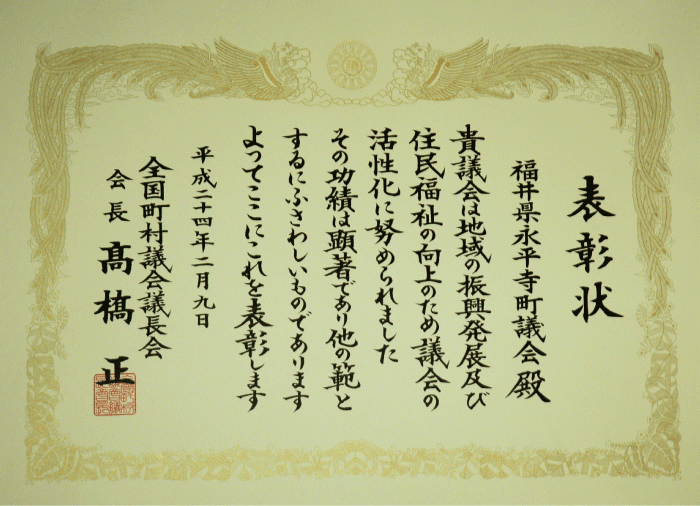 表彰状
福井県永平寺町議会 殿
貴議会は地域の振興発展及び
住民福祉の向上のため議会の
活性化に努められました
その功績は顕著であり他の範と
するにふさわしいものであります
よってここにこれを表彰します
平成二十四年二月九日
全国町村議会議長会
会長 髙橋 正